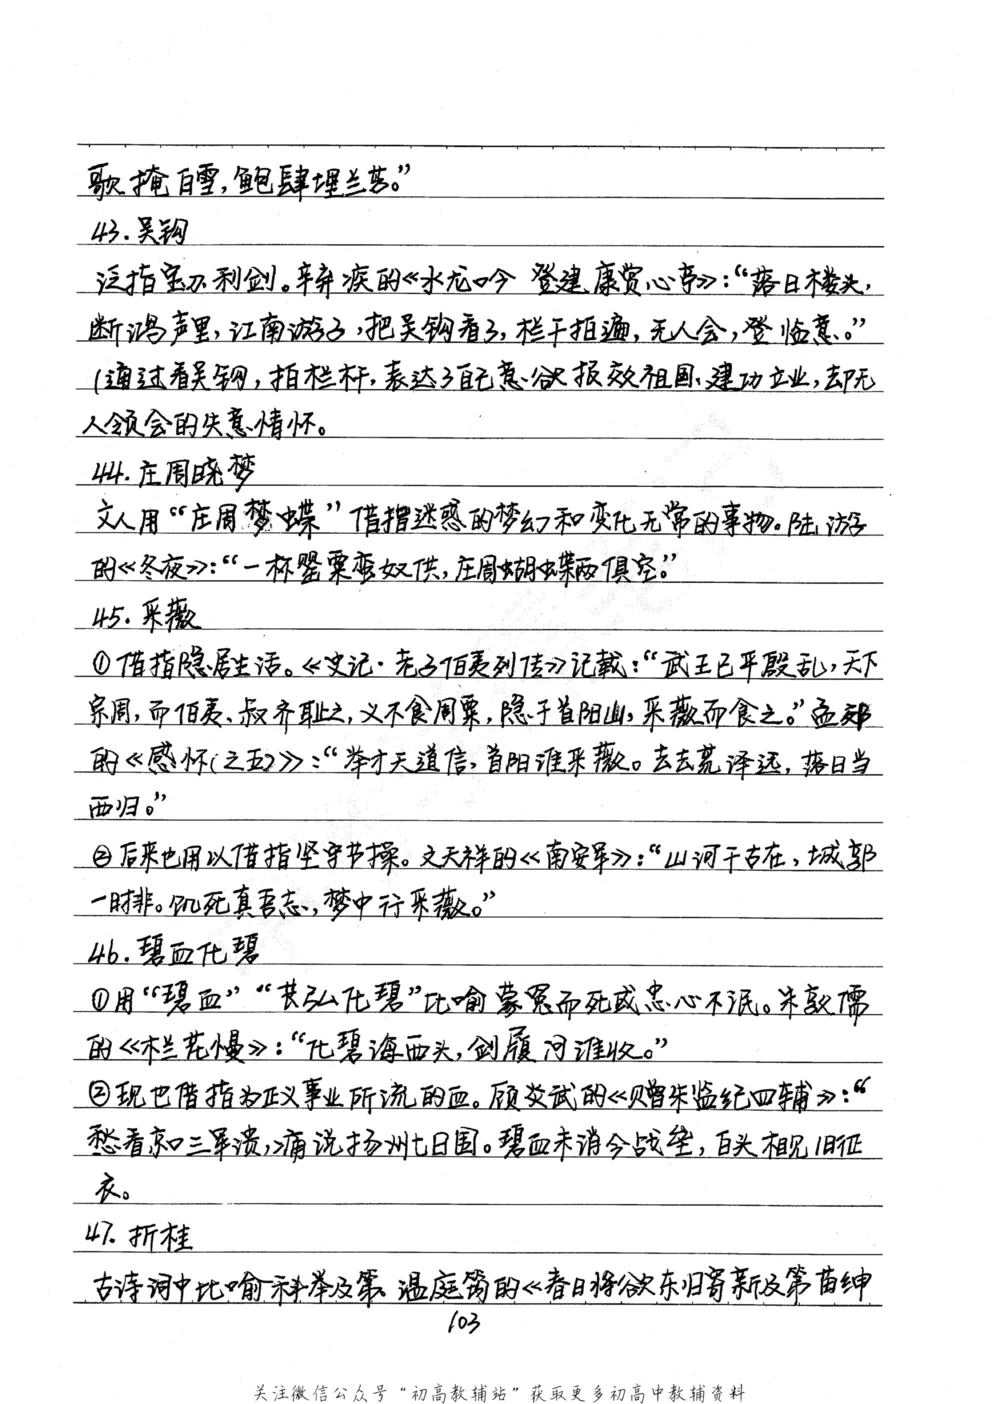 歌掩白雪，鲍肆埋兰芸。”
43.吴钩
泛指宝刀利剑。辛弃疾的《水龙吟 登建康赏心亭》：“落日楼头，
断鸿声里，江南游子，把吴钩看了，栏干拍遍，无人会，登临意。”
(通过看吴钩，拍栏杆，表达了自己意欲报效祖国、建功立业，却无
人领会的失意情怀。
44.庄周晓梦
文人用“庄周梦蝶”借指迷惑的梦幻和变化无常的事物。陆游
的《冬夜》：“一杯罂粟蛮奴供，庄周蝴蝶两俱空。”
45.采薇
①借指隐居生活。《史记·老子伯夷列传》记载：“武王已平殷乱，天下
宗周，而伯夷、叔齐耻之，义不食周粟，隐于首阳山，采薇而食之。”孟郊
的《感怀(之五)》：“举才天道信，首阳谁采薇。去去荒泽远，落日当
西归。”
②后来也用以借指坚守节操。文天祥的《南安军》：“山河千古在，城郭
一时非。饥死真吾志，梦中行采薇。”
46.碧血化碧
①用“碧血”“苌弘化碧”比喻蒙冤而死或忠心不泯。朱敦儒
的《木兰花慢》：“化碧海西头，剑履河谁收。”
②现也借指为正义事业所流的血。顾炎武的《赠朱监纪四辅》：“
愁看京口三军溃，痛说扬州七日围。碧血未消今战垒，白头相见旧征
衣。
47.折桂
古诗词中比喻科举及第。温庭筠的《春日将欲东归寄新及第苗绅
103
关注微信公众号“初高教辅站”获取更多初高中教辅资料